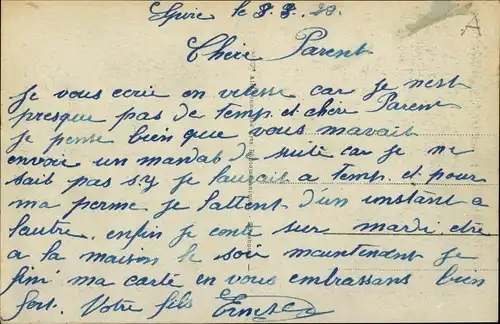 Spire le 8.8.29.
Chère Parent
Je vous écrie en vitesse car je nest
presque pas de temp. et chère Parent
je pense bien que vous mavait
envoie un mandat d suite car je ne
sait pas s'y je laurait a temp. et pour
ma perme je l'attent d'un instant a
lautre. enfin je conte sur mardi etre
a la maison le soir maintenant je
fini ma carte en vous embrassans bien
fort. Votre fils Ernest
A